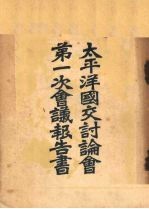 太平洋國交討論會
第一次會議報告書